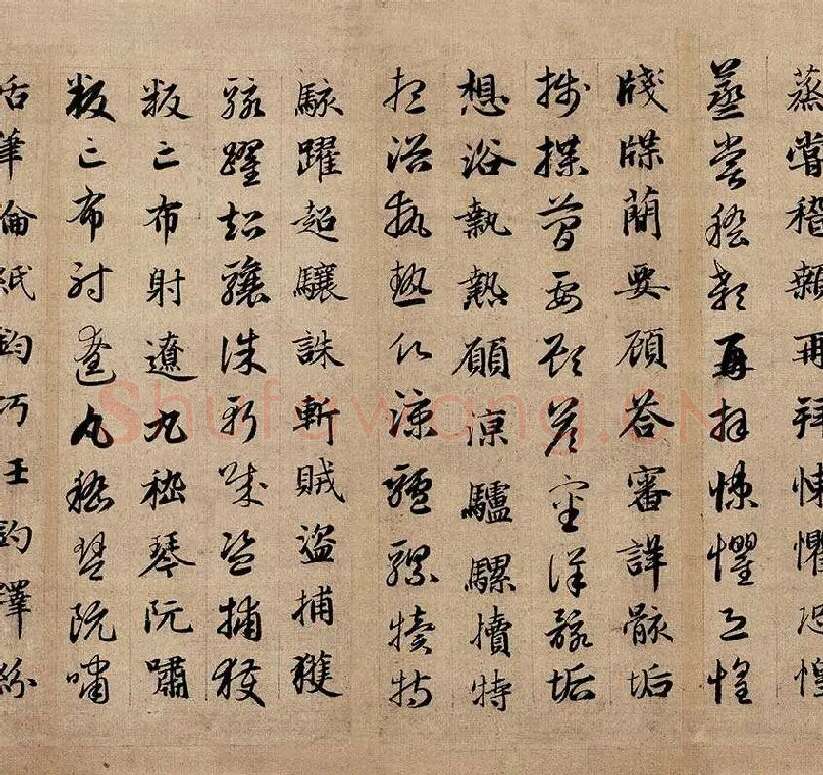 蒸甞稽顙再拜悚懼恐惶
蒸甞稽顙再拜悚懼恐惶
牋牒蕳要顧荅審詳骸垢
牋牒蕳要顧荅審詳骸垢
想浴執熱願涼驢騾犢特
想浴執熱願涼驢騾犢特
駭躍超驤誅斬賊盜捕獲
駭躍超驤誅斬賊盜捕獲
叛亡布射遼丸嵇琴阮嘯
叛亡布射遼丸嵇琴阮嘯
恬筆倫紙鈞巧任釣釋紛
Shufawang.CN